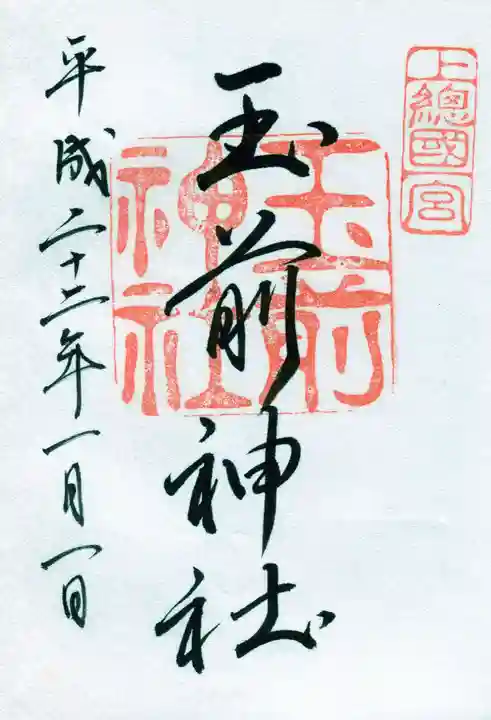 上總國一宮
玉前神社
玉前神社
平成二十二年一月一日